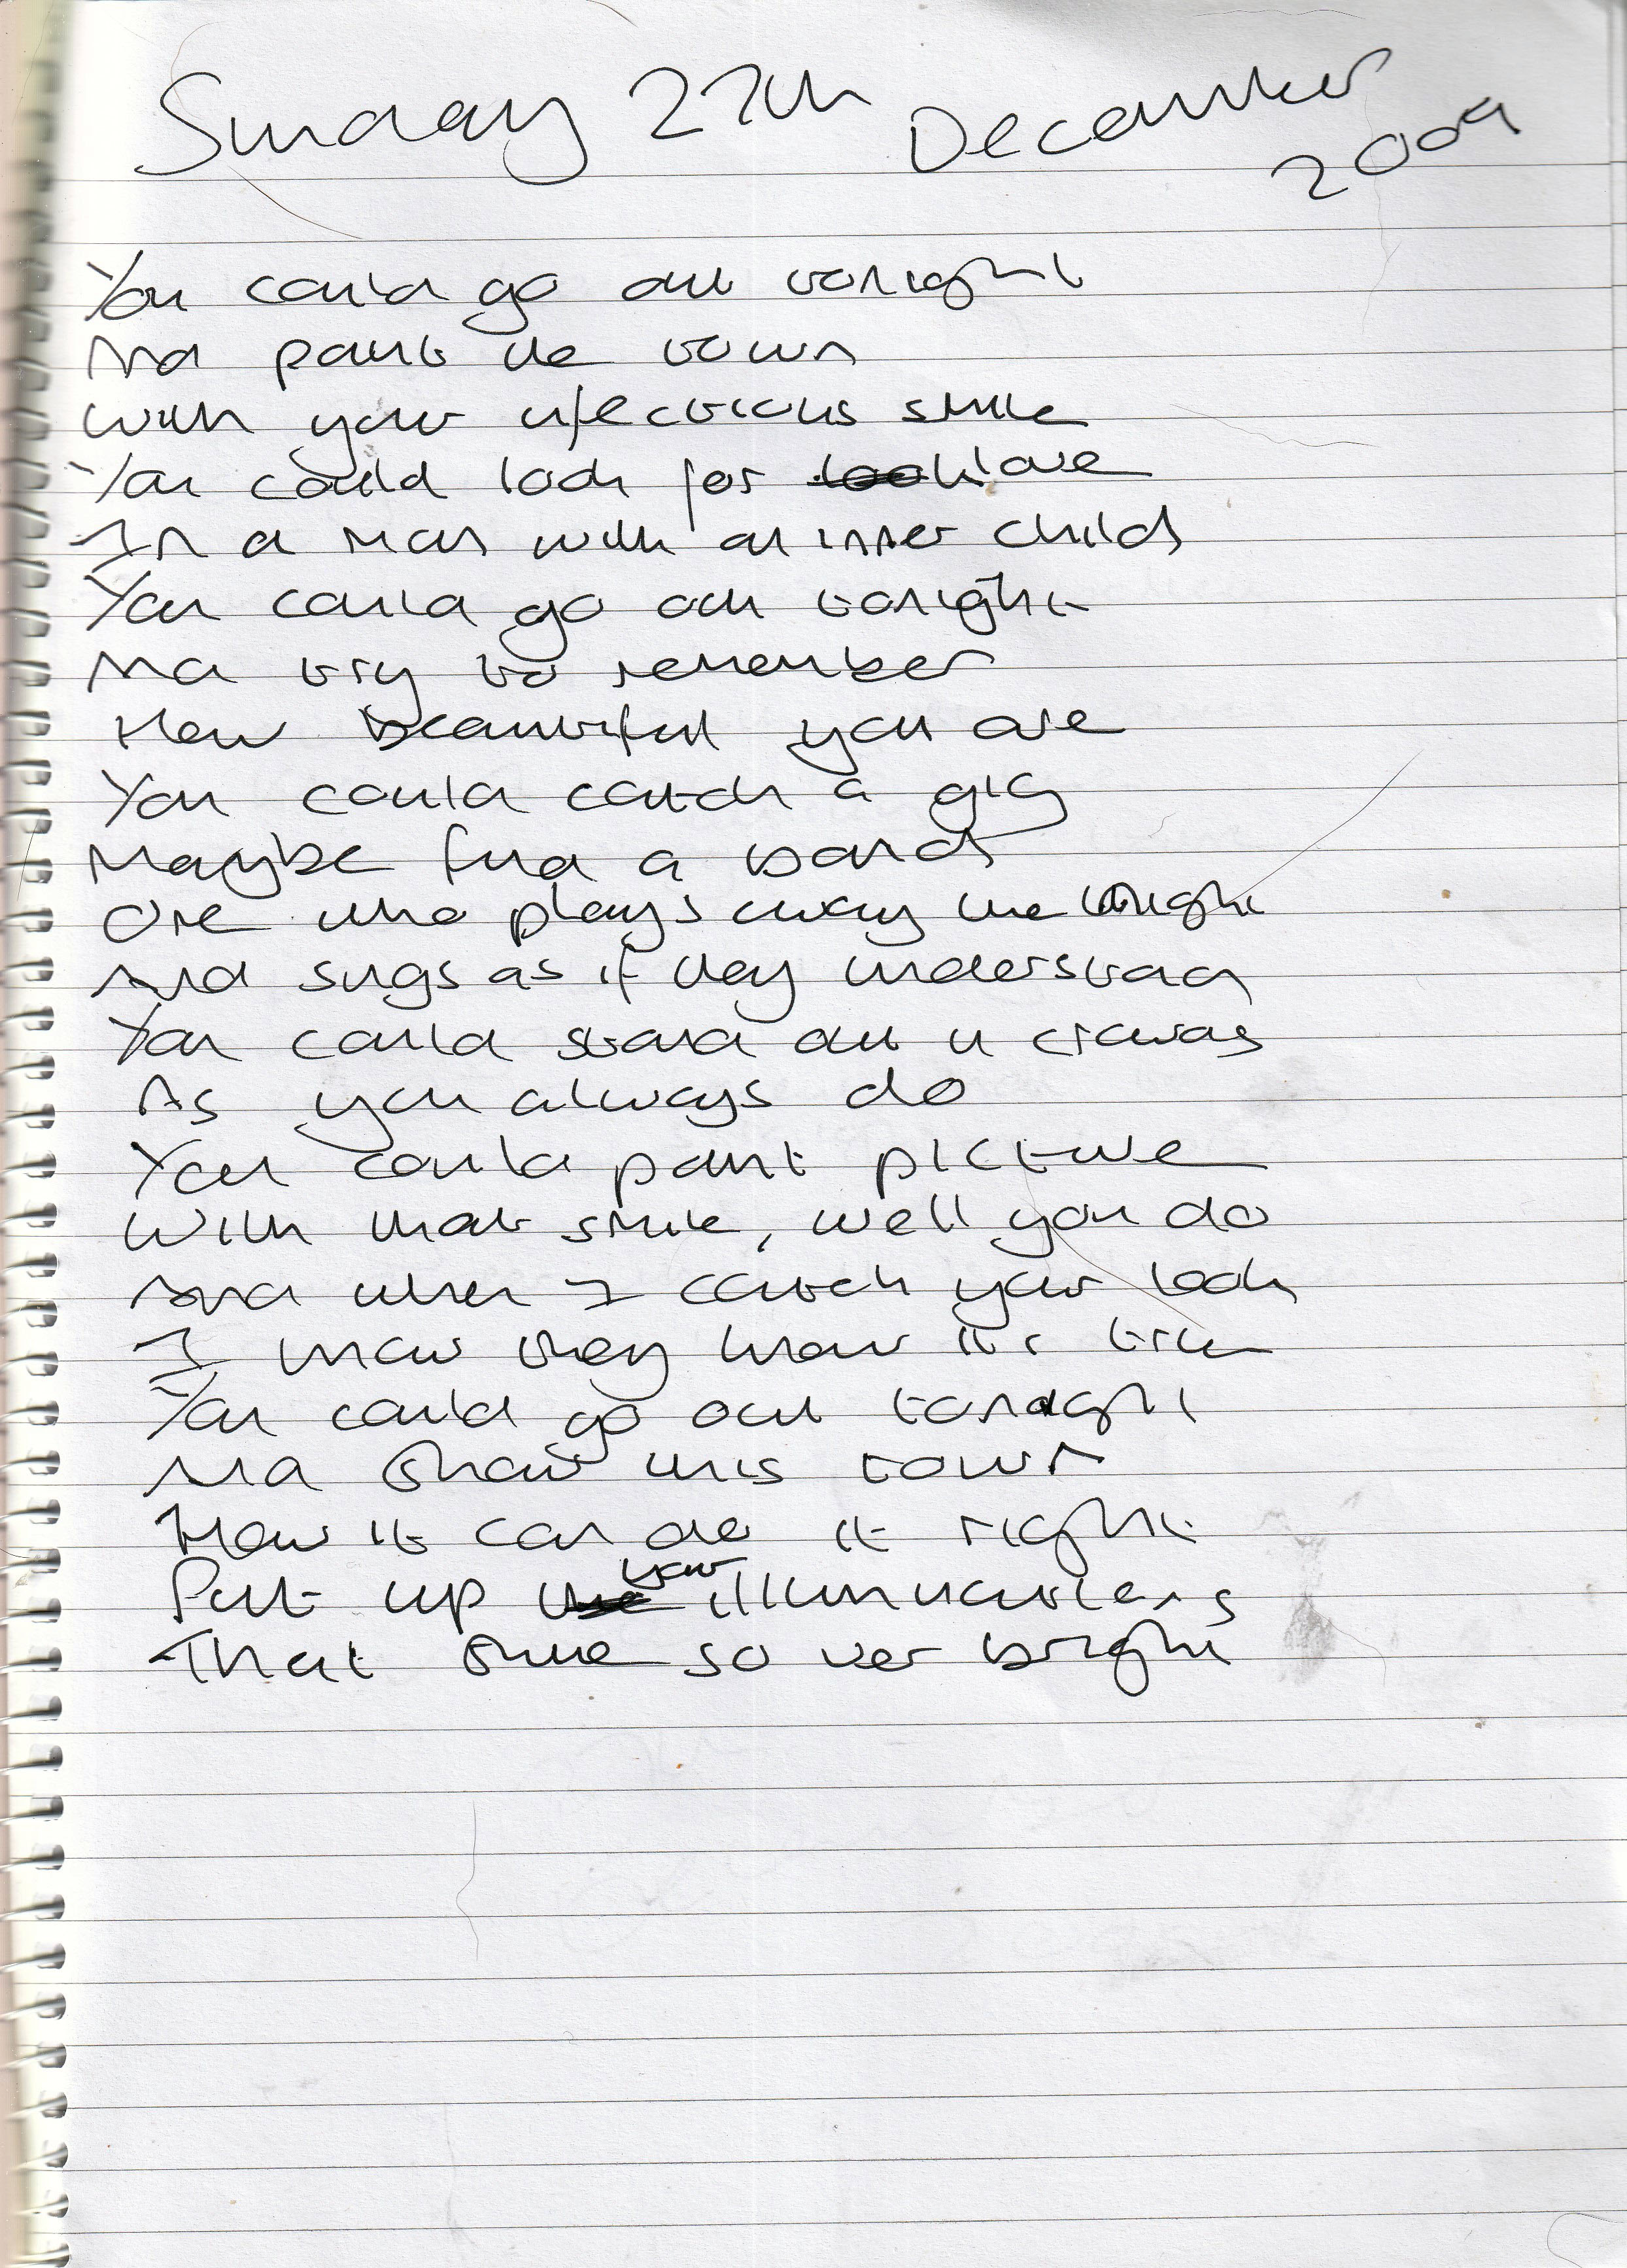 Sunday 27th December 2009
You could go out tonight
And paint the town
With your infectious smile
You could look for look love
In a man with an inner child
You could go out tonight
And try to remember
How beautiful you are
You could catch a gig
Maybe find a band
One who plays away the night
And sings as if they understand
You could stand out in crowds
As you always do
You could paint picture
With that smile, well you do
And when I catch your look
I know they know its true
You could go out tonight
And show this town
How it can do it right
Put up the your illuminations
That shine so ver bright